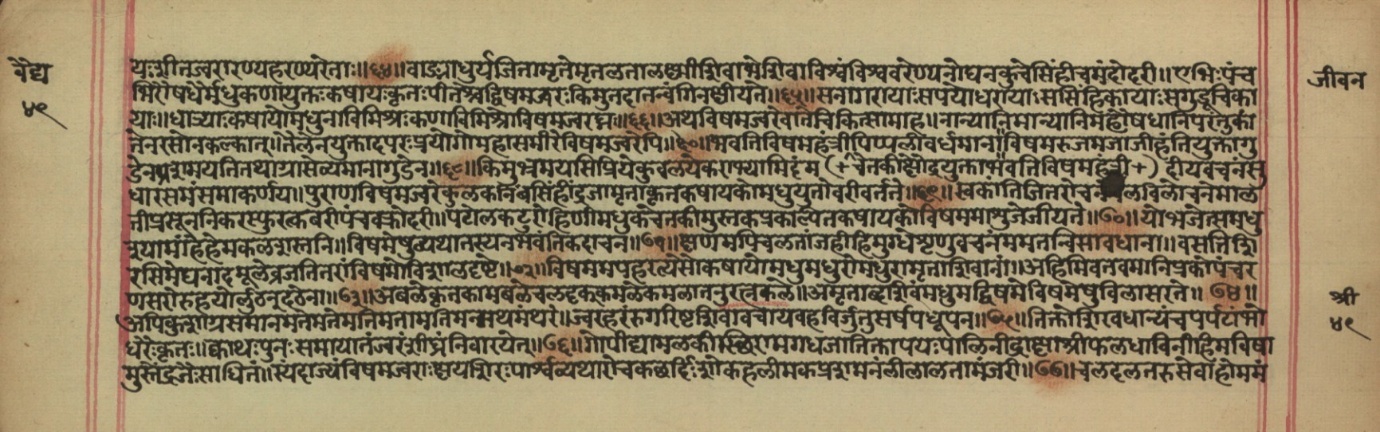 वैद्य
४९
जीवन
यःशीतज्वरारण्यहरण्यरेताः॥६४॥वाङ्माधुर्यजितामृतेमृतलतालक्ष्मीशिवाभेशिवाविश्वंविश्ववरेण्यनोघनकुचेसिंहीचमंदोदरी॥एभिःपंच
भिरौषधैर्मधुकणायुक्तःकषायःकृतःपीतश्चद्विषमज्वरःकिमुतदातन्वंगिनक्षीयते॥६५॥सनागरायाःसपयोधरायाःससिंहिकायाःसगुडूचिका
याः॥धात्र्याःकषायोमधुनाविमिश्रःकणाविमिश्रोविषमज्वरघ्नः॥६६॥अथविषमज्वरेवातेचिकित्सामाह॥नान्यानिमान्यानिमहौषधानिपरंतुकां
तेनरसोनकल्कात्॥तैलेनयुक्तादपरःप्रयोगोमहासमीरेविषमज्वरेपि॥६७॥भवतिविषमहंत्रीपिप्पलीवर्धमाना॥विषमरुजमजाजीहंतियुक्तागु
डेनप्रशमयतितथाग्र्यासेव्यमानागुडेन॥६८॥किमुभ्रमयसिप्रियेकुवलयेकराभ्यामिदंम(+चेतकीक्षौद्रयुक्ताभवतिविषमहंत्री+)दीयवचनंसु
धारसमंसमाकर्णय॥पुराणविषमज्वरेकुलकनिंबसिंहींद्रजामृताकृतकषायकोमधुयुतोवरीवर्तते॥६९॥स्वकांतिजितरोचनेलविलोचनेमाल
तीप्रसूननिकरस्फुरत्कबरीपंचवक्रोदरी॥पटोलकटुरोहिणीमधुकचेतकीमुस्तकप्रकल्पितकषायकोविषममाशुजेजीयते॥७०॥योभजेत्समधु
श्यामांहेहेमकलशस्तनि॥विषमेषुव्यथातस्यनभवंतिकदाचन॥७१॥क्षणमपिचलतांजहीहिमुग्धेशृणुवचनंममतन्विसावधाना॥वसतिशि
रसिमेघनादमूलेव्रजतितरांविषमोविशालदृष्टे॥७२॥विषममपहरत्येसोकषायोमधुमधुरोमधुरामृताशिवानां॥अहिमिवतवमानिप्रकोपंचर
णसरोरुहयोर्लुठन्दृढेना॥७३॥अबलेकृतकामबलेचलदृक्कमलेकमलातनुरत्नकले॥अमृताब्दशिवंमधुमद्विषमेविषमेषुविलासरते॥७४॥
श्री
४९
अपिकुशाग्रसमानमतेमतेमतिमतामतिमन्मथमंथरे॥ज्वरहरंरुगरिष्टशिवावचायवहविर्जतुसर्षपधूपनं॥७५॥तिक्ताशिवधान्यंचपर्पटंभो
धेरैःकृतः॥क्वाथःपुनःसमायातंज्वरंशीघ्रंनिवारयेत्॥७६॥गोपीद्यामलकीस्थिरामगधजातिक्तापयःपालिनीद्राक्षाश्रीफलधाविनीहिमविषा
मुस्तेंद्रजैःसाधितं॥स्यादाज्यंविषमज्वराःक्षयशिरःपार्श्वव्यथारोचकछर्दिःशोकहलीमकप्रशमनंलीलालतामंजरी॥७७॥चलदलतरुसेवाहोममं